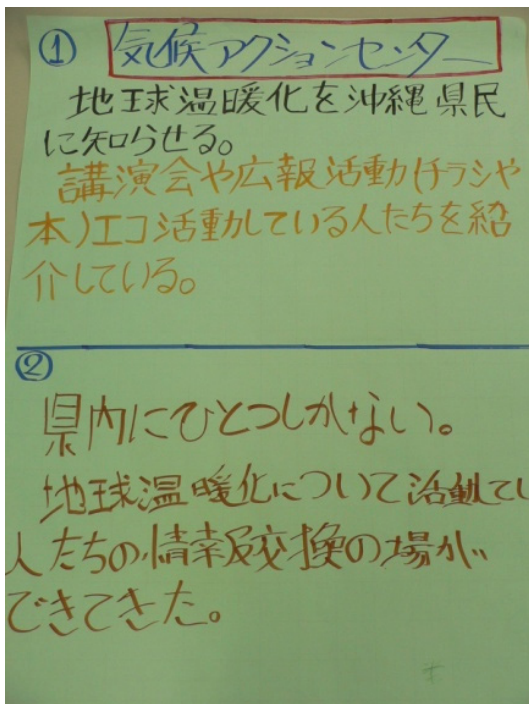 ① 気候アクションセンター
地球温暖化を沖縄県民
に知らせる。
講演会や広報活動(チラシや
本)エコ活動している人たちを紹
介している。
②
県内にひとつしかない。
地球温暖化について活動してい
人たちの情報交換の場が
できてきた。